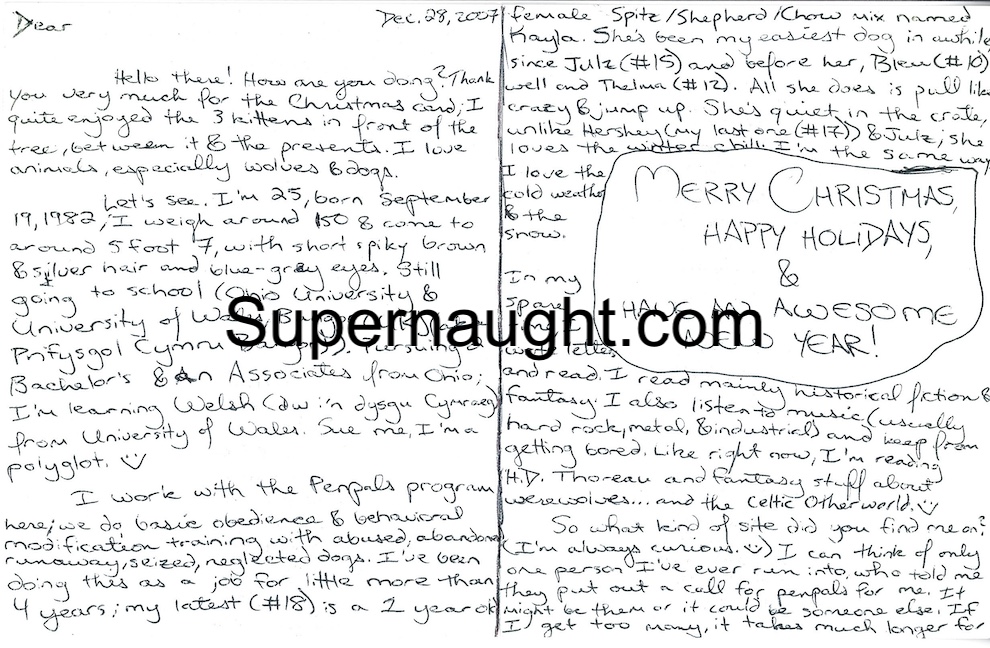 Dear
Dec. 28, 2007
Hello there! How are you doing? Thank
you very much for the Christmas card; I
quite enjoyed the 3 kittens in front of the
tree, between it & the presents. I love
animals, especially wolves & dogs.
Let's see. I'm 25, born September
19, 1982; I weigh around 150 & come to
around 5 foot 7, with short spiky brown
& silver hair and blue-gray eyes. Still
going to school (Ohio University &
University of Wales
Prifysgol Cymru Bangor). Pursuing a
Bachelor's & an Associates from Ohio;
I'm learning Welsh (dw i'n dysgu Cymraeg)
from University of Wales. Sue me, I'm a
polyglot.
I work with the Penpals program
here; we do basic obedience & behavioral
modification training with abused, abandoned,
runaway, seized, neglected dogs. I've been
doing this as a job for little more than
4 years; my latest (#18) is a 2 year old
female Spitz/Shepherd/Chow mix named
Kayla. She's been my easiest dog in awhile
since Julz (#15) and before her, Bleu (#10)
well and Thelma (#12). All she does is pull like
crazy & jump up. She's quiet in the crate,
unlike Hershey (my last one (#17)) & Julz; she
loves the winter chill. I'm the same way,
I love the
cold weather
& the
snow.
In my
spare
time, I
write letters
and read. I read mainly historical fiction &
fantasy. I also listen to music (usually
hard rock, metal, & industrial) and keep from
getting bored. Like right now, I'm reading
H.D. Thoreau and fantasy stuff about
werewolves... and the Celtic Otherworld.
So what kind of site did you find me on?
(I'm always curious.) I can think of only
one person I've ever run into, who told me
they put out a call for penpals for me. It
might be them or it could be someone else. If
I get too many, it takes much longer for
MERRY CHRISTMAS,
HAPPY HOLIDAYS,
&
HAVE AN AWESOME
NEW YEAR!
Supernaught.com